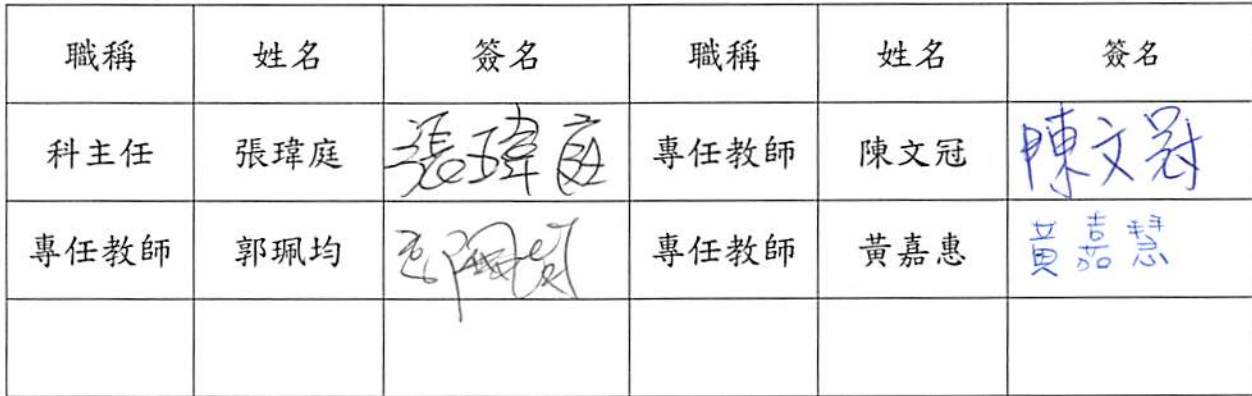 職稱 姓名 簽名 職稱 姓名 簽名
科主任 張瑋庭 張瑋庭 專任教師 陳文冠 陳文冠
專任教師 郭珮均 郭珮均 專任教師 黃嘉惠 黃嘉慧